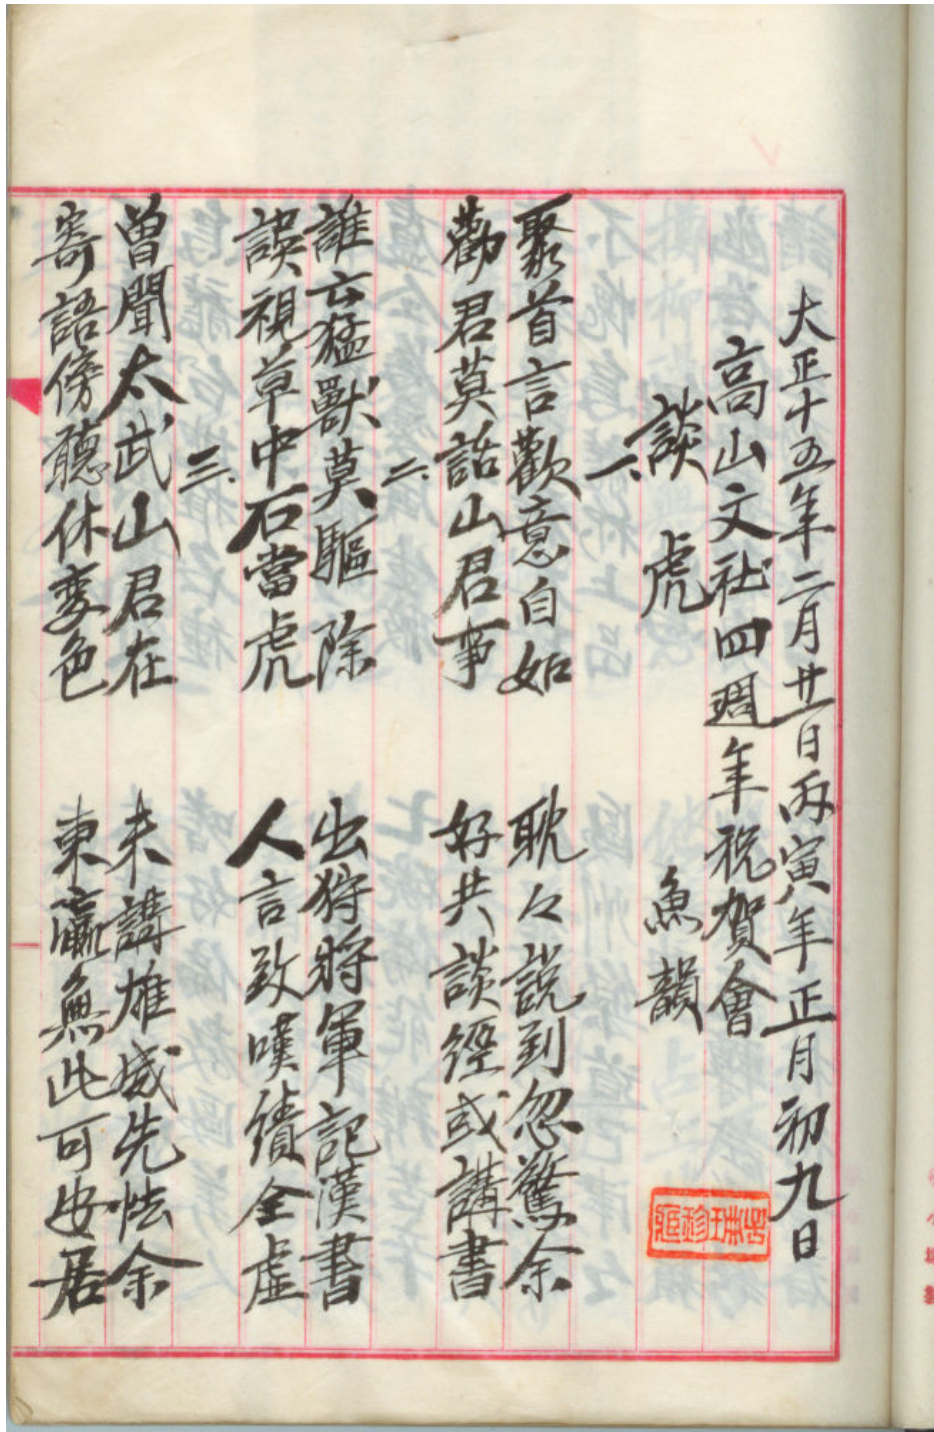 大正十五年二月廿一日丙寅年正月初九日
高山文社四週年祝賀會
談虎　魚韻
一、
聚首言歡意自如　耽々說到忽驚余
勸君莫話山君事　好共談經或講書
二、
誰云猛獸莫驅除　出狩將軍記漢書
誤視草中石當虎　人言致嘆績全虛
三、
曾聞太武山君在　未講雄威先怯余
寄語傍聽休變色　東瀛無此可安居